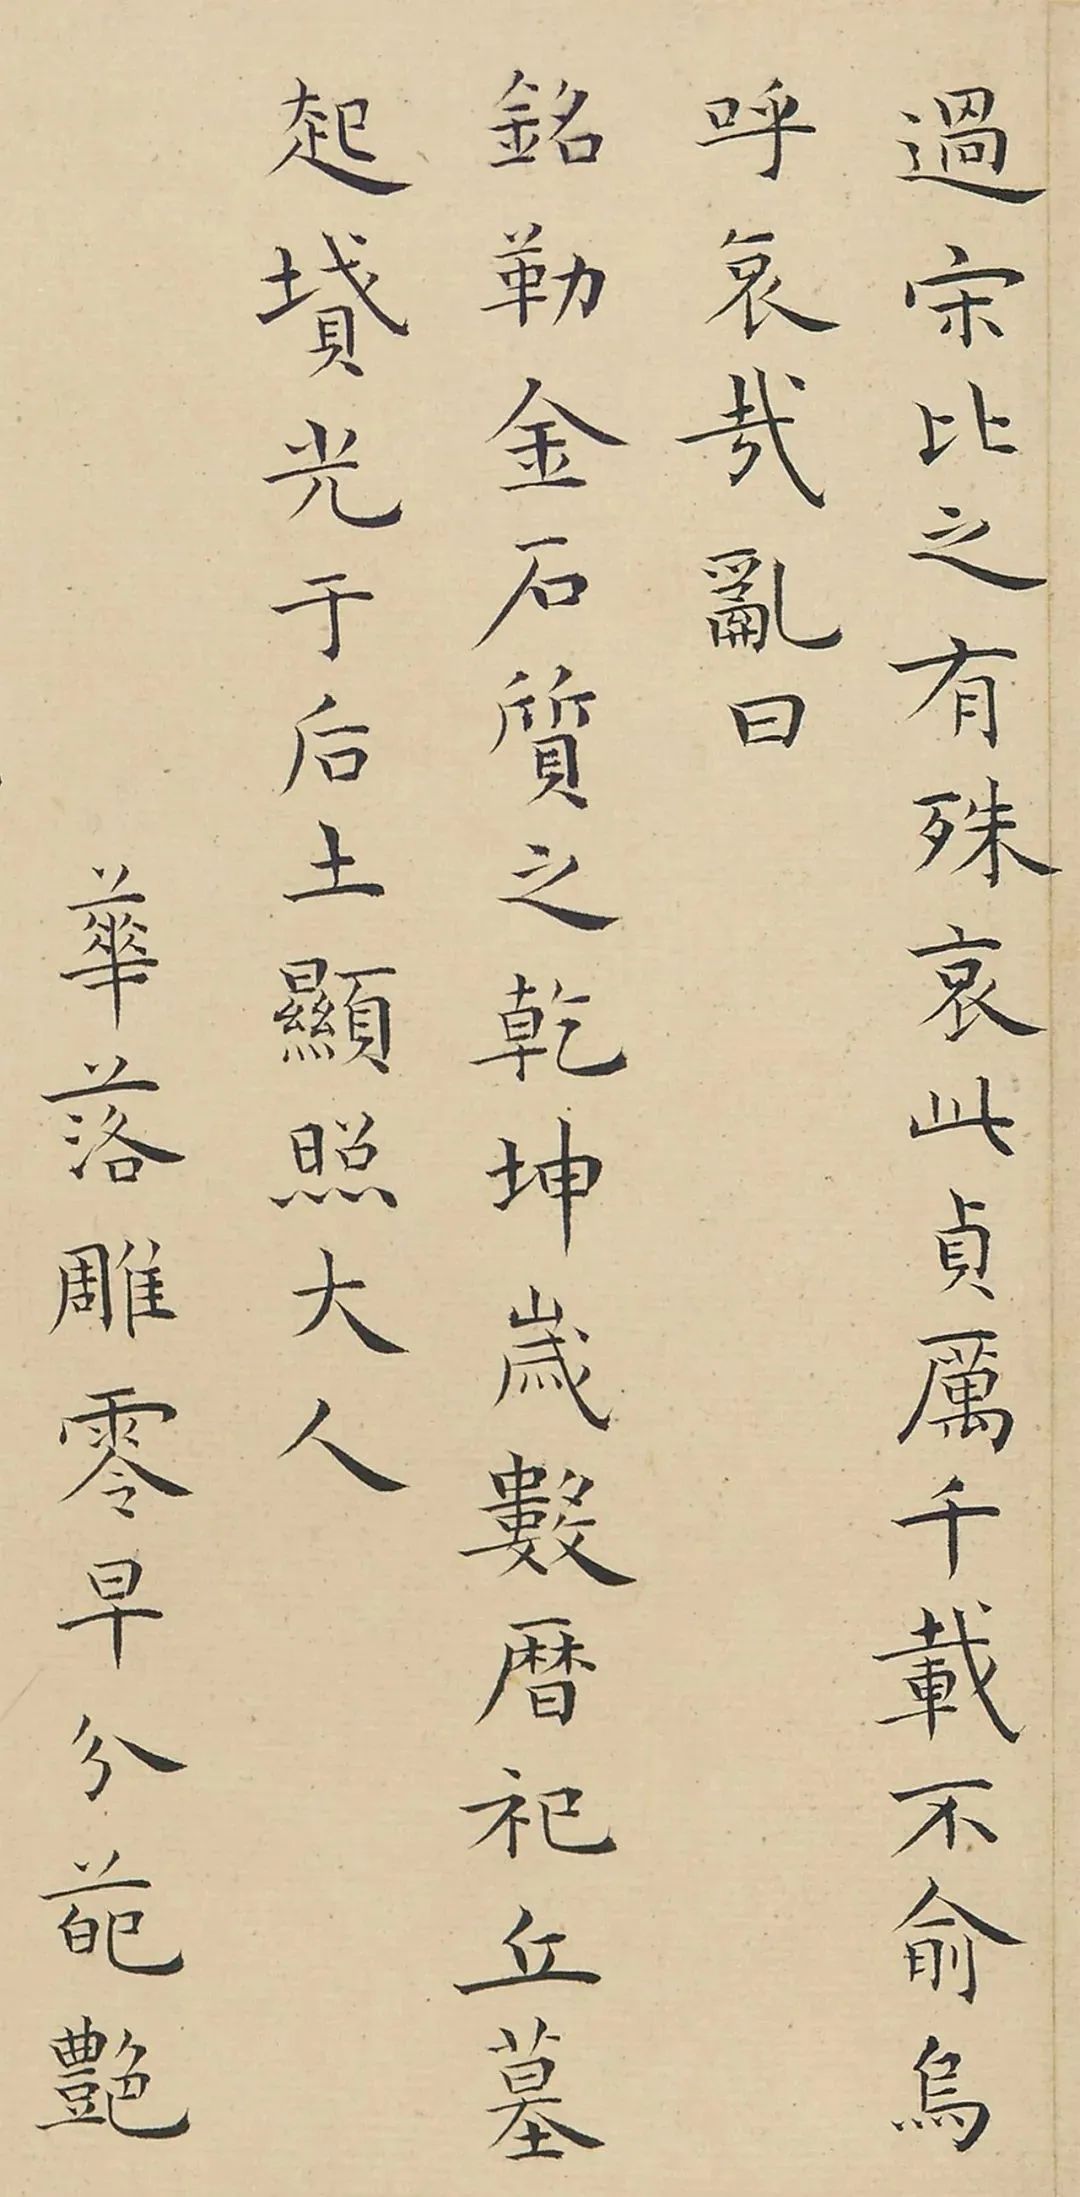 過宋比之有殊哀此貞厲千載不俞烏
呼哀哉亂曰
銘勒金石質之乾坤歲數曆祀丘墓
起墳光于后土顯照大人
華落雕零早分葩艷